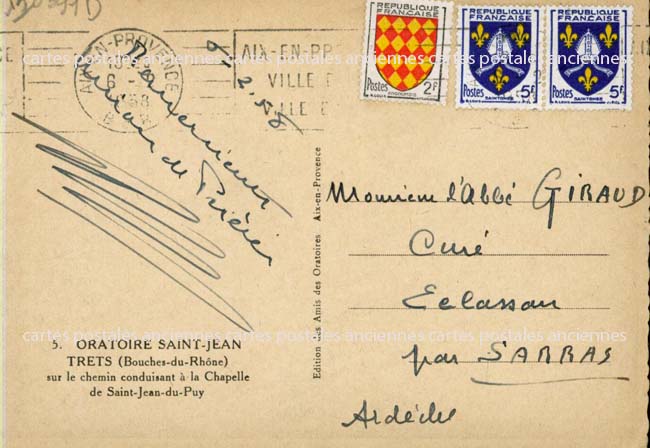 AIX-EN-PROVENCE
6
AIX-EN-PR
VILLE
REPUBLIQUE
FRANÇAISE
Postes
2F
ANGOUMOIS
REPUBLIQUE
FRANÇAISE
Postes
5F
SAINTONGE
REPUBLIQUE
FRANÇAISE
Postes
5F
SAINTONGE
cartes postales anciennes cartes postales anciennes cartes postales anciennes
6.2.58
union de Prières
Monsieur l'Abbé GIRAUD
Curé
Eclassan
par SARRAS
Ardèche
Edition des Amis des Oratoires Aix-en-Provence
cartes postales anciennes cartes postales anciennes cartes postales anciennes
5. ORATOIRE SAINT-JEAN
TRETS (Bouches-du-Rhône)
sur le chemin conduisant à la Chapelle
de Saint-Jean-du-Puy